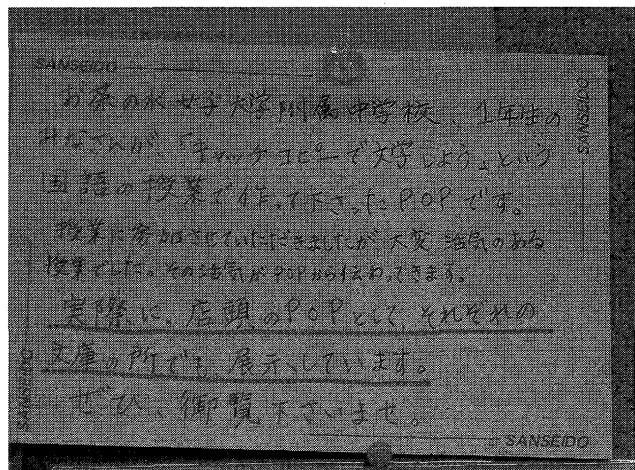 SANSEIDO
お茶の水女子大学附属中学校、1年生の
みなさんが、「キャッチコピーで文学しよう」という
国語の授業で作って下さったPOPです。
授業に参加させていただきましたが大変活気のある
授業でした。その活気がPOPから伝わってきます。
実際に、店頭のPOPとして、それぞれの
文庫の所でも、展示しています。
ぜひ、御覧下さいませ。
SANSEIDO
SANSEIDO
SANSEIDO